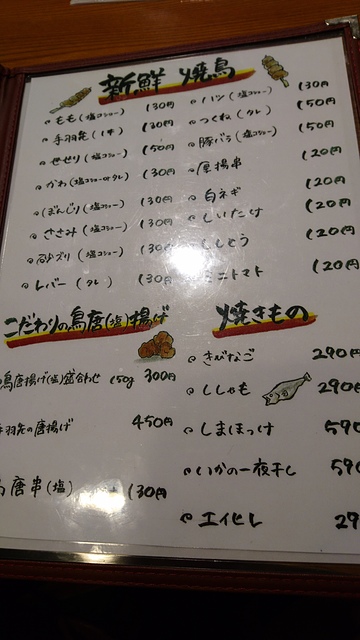 新鮮 焼鳥
もも(塩コショー) 130円
手羽先(1本) 130円
せせり(塩コショー) 150円
かわ(塩コショーorタレ) 130円
ぼんじり(塩コショー) 130円
ささみ(塩コショー) 130円
砂ズリ(塩コショー) 130円
レバー(タレ) 130円
ハツ(塩コショー) 130円
つくね(タレ) 150円
豚バラ(塩コショー) 150円
厚揚串 120円
白ネギ 120円
しいたけ 120円
ししとう 120円
ミニトマト 120円
こだわりの鳥唐(塩)揚げ
鳥唐揚げ(塩)盛合わせ 150g 300円
手羽先の唐揚げ 450円
唐串(塩) 130円
焼きもの
きびなご 290円
ししゃも 290円
しまほっけ 590
いかの一夜干し 590
エイヒレ 29